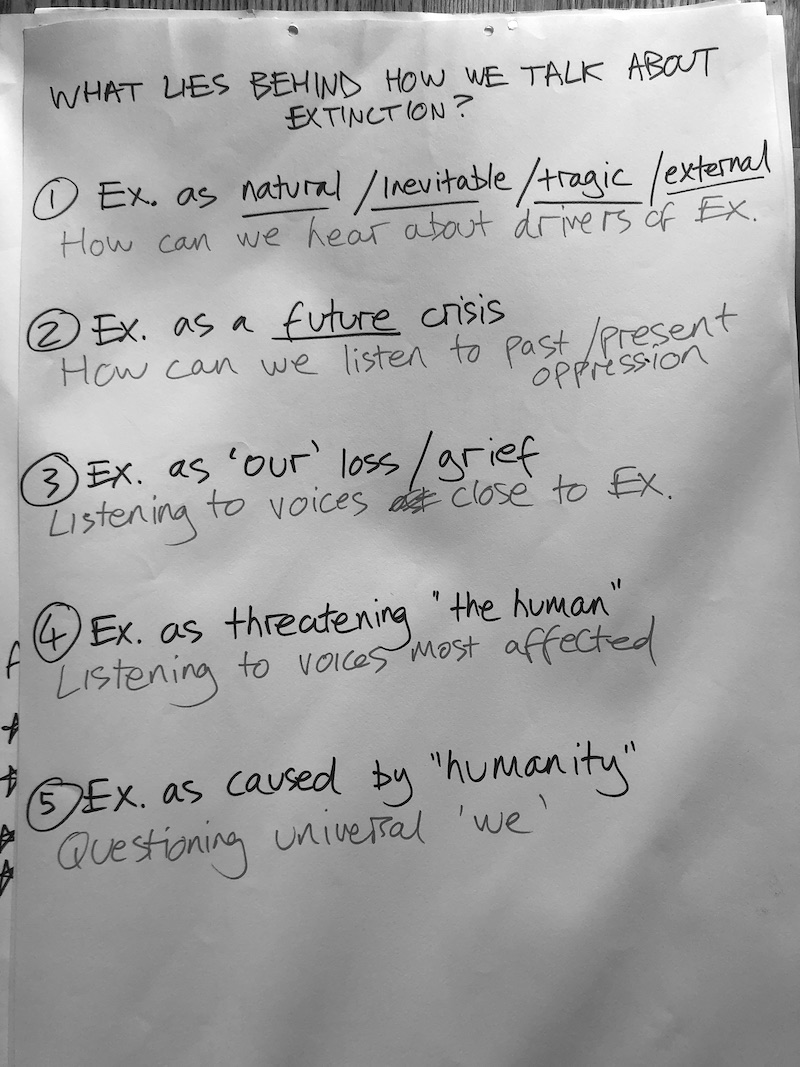 WHAT LIES BEHIND HOW WE TALK ABOUT
EXTINCTION?
① Ex. as natural / Inevitable / tragic / external
How can we hear about drivers of Ex.
② Ex. as a future crisis
How can we listen to past / present
oppression
③ Ex. as 'our' loss / grief
Listening to voices close to Ex.
④ Ex. as threatening "the human"
Listening to voices most affected
⑤ Ex. as caused by "humanity"
Questioning universal 'we'